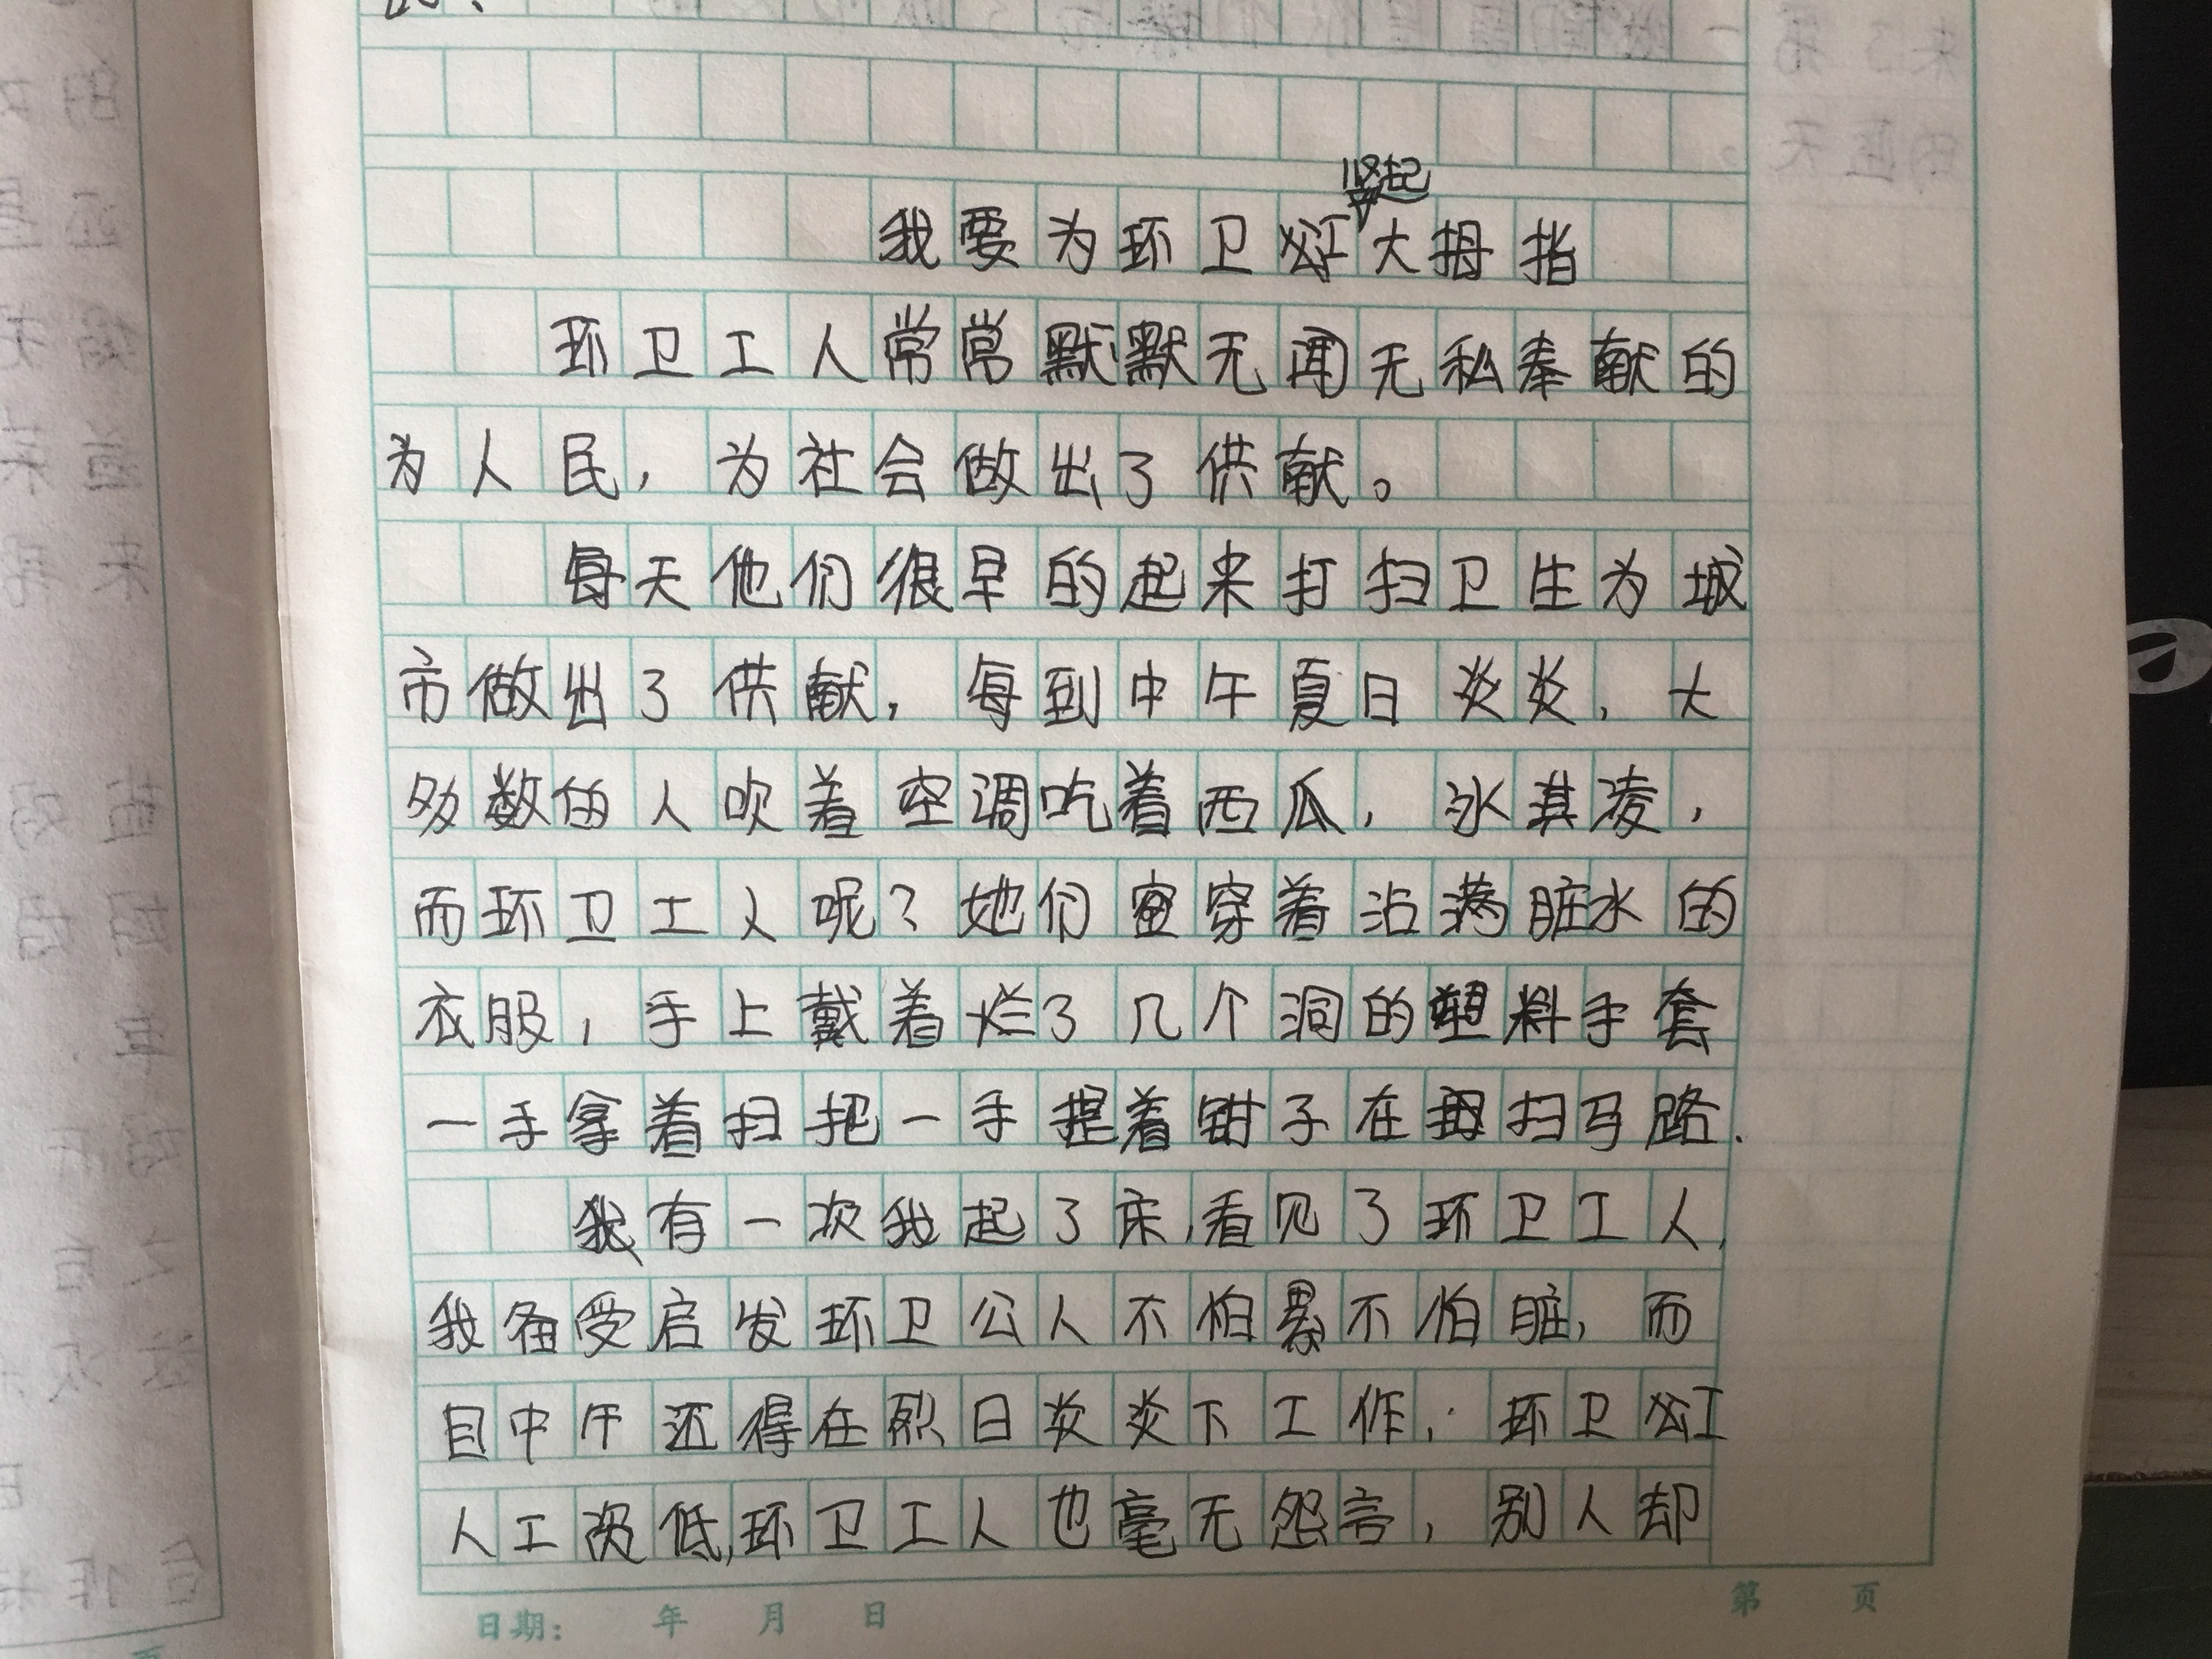 我要为环卫工竖起大拇指
环卫工人常常默默无闻无私奉献的
为人民，为社会做出了供献。
每天他们很早的起来打扫卫生为城
市做出了供献，每到中午夏日炎炎，大
多数的人吹着空调吃着西瓜，冰淇凌，
而环卫工人呢？她们穿着沾满脏水的
衣服，手上戴着烂了几个洞的塑料手套
一手拿着扫把一手提着钳子在扫马路.
我有一次我起了床，看见了环卫工人，
我备受启发环卫公人不怕累不怕脏，而
且中午还得在烈日炎炎下工作，环卫工
人工资低，环卫工人也毫无怨言，别人却
日期： 年 月 日
第 页